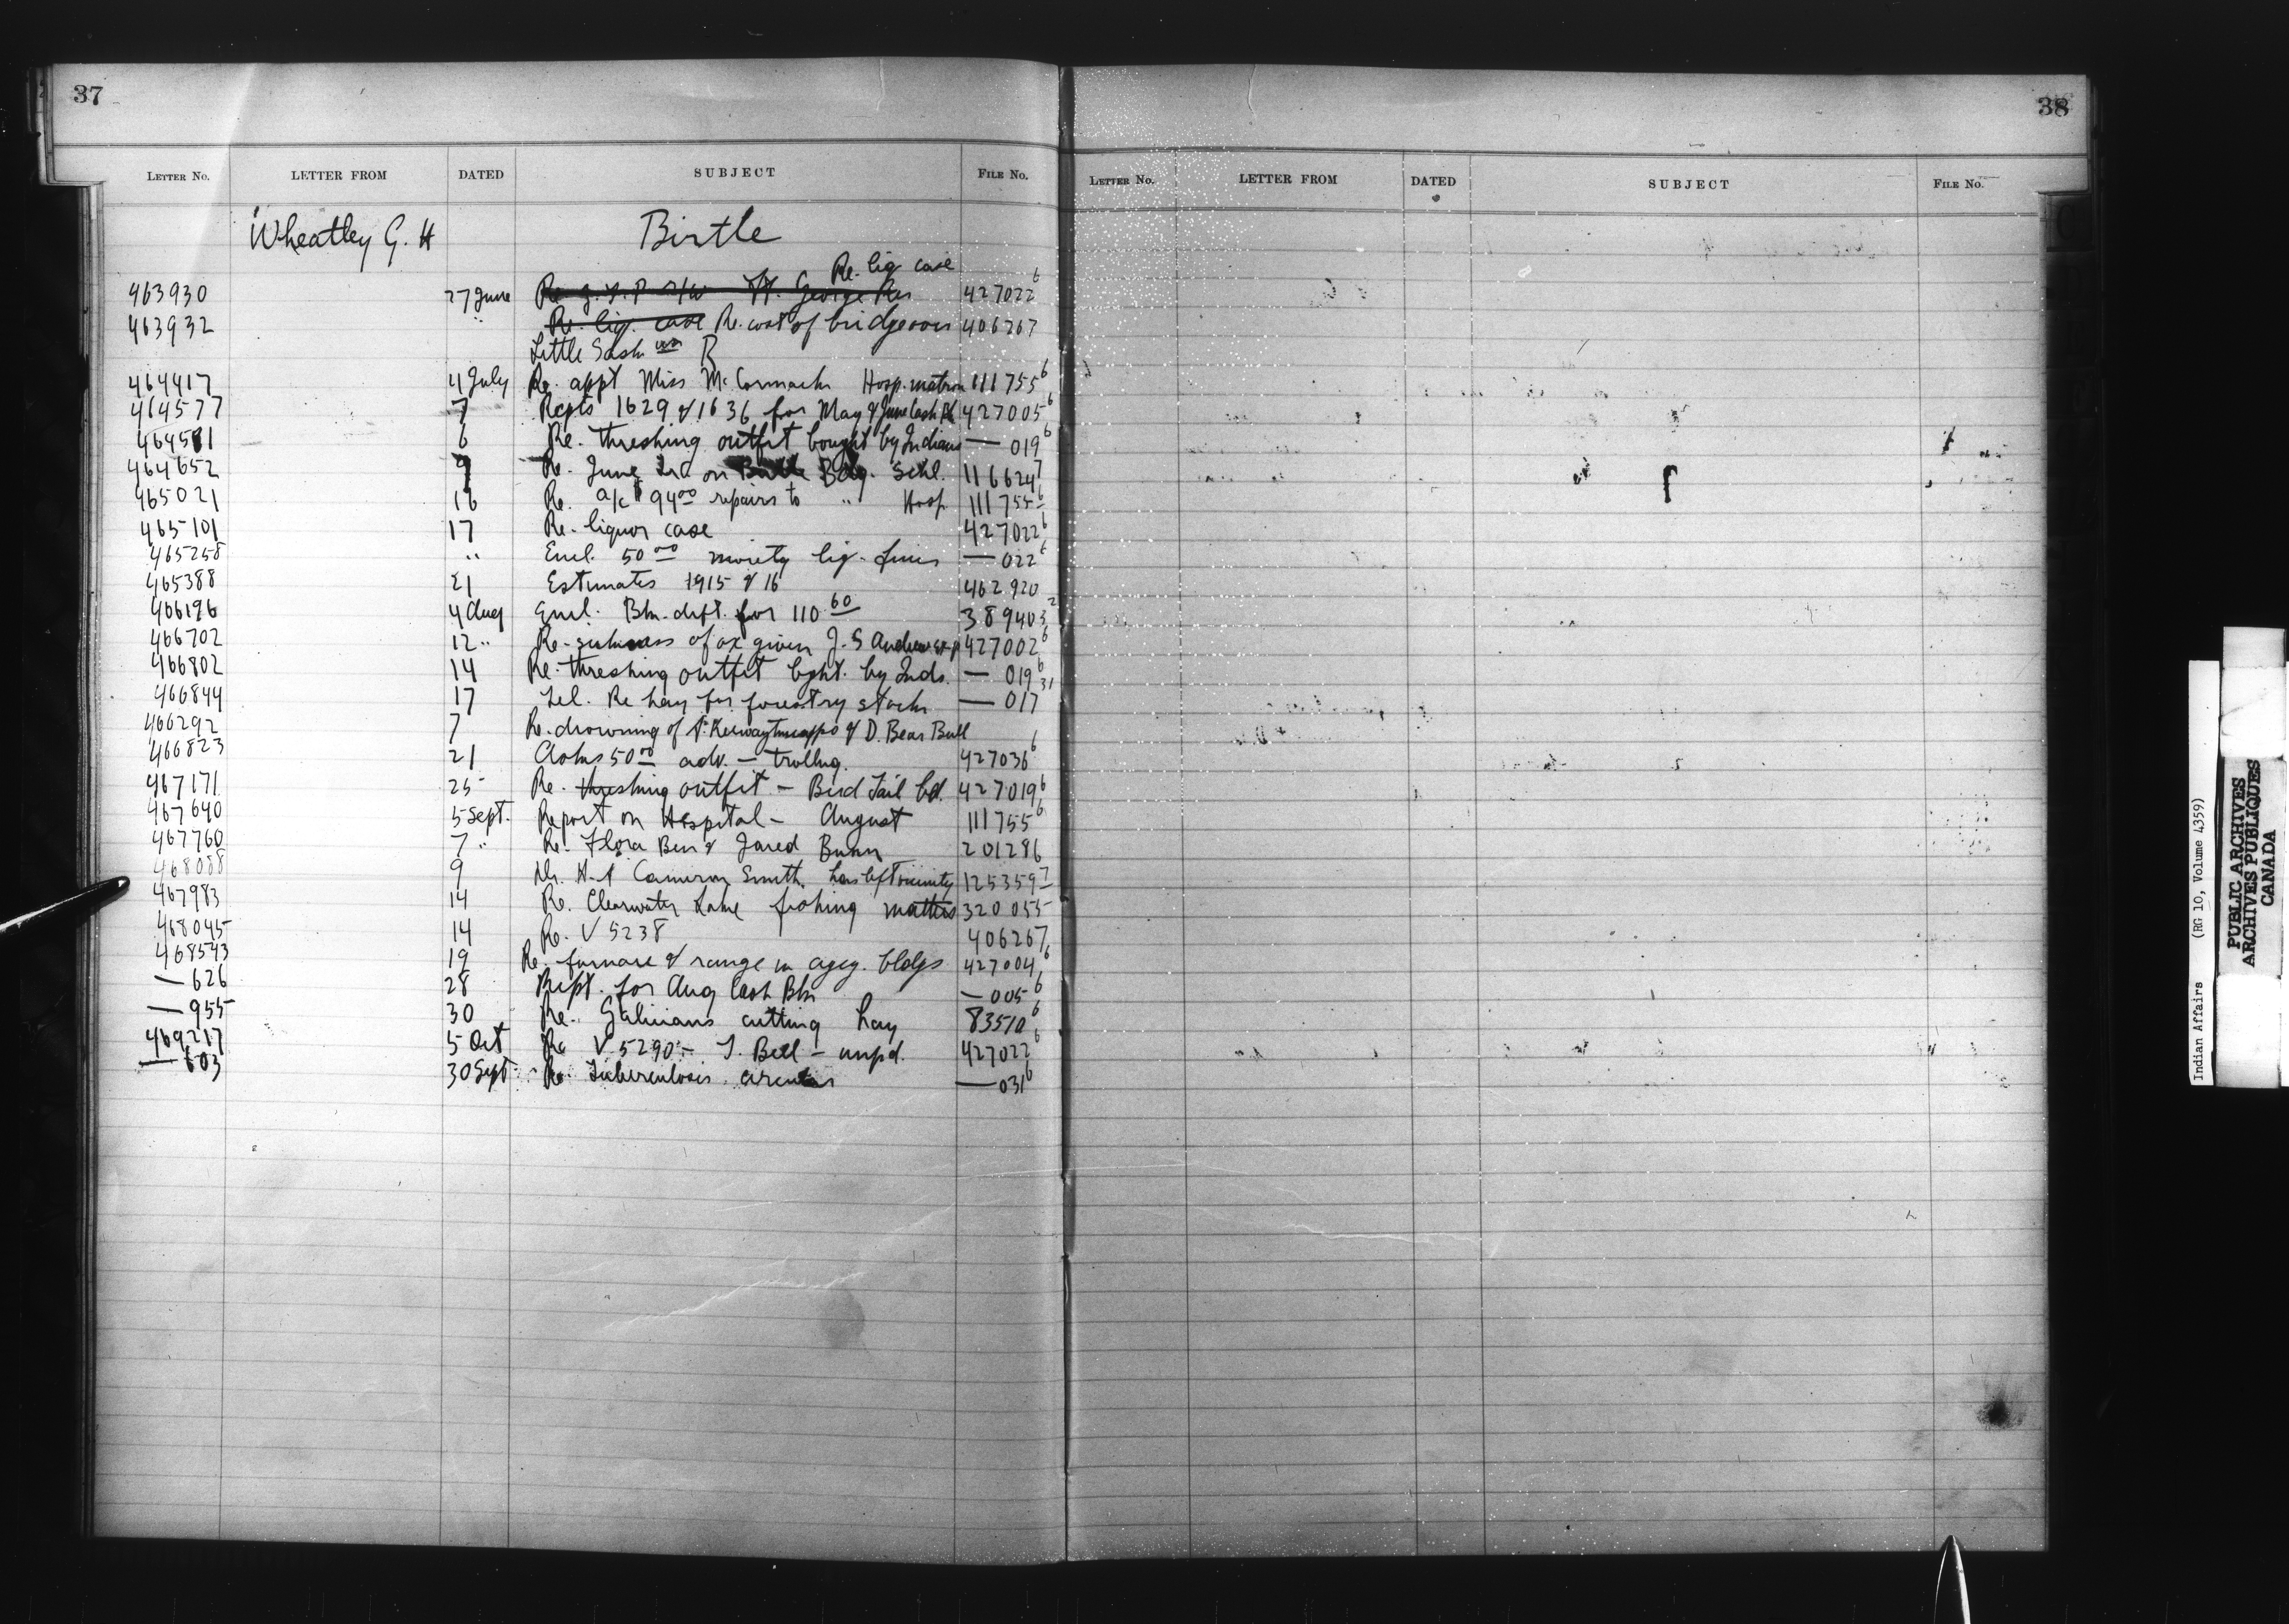 37
38
LETTER No. LETTER FROM DATED SUBJECT FILE No.
LETTER No. LETTER FROM DATED SUBJECT FILE No.
Wheatley G. H Birtle
Re. liq case
463930 27 June Re G.T.P. R/W St. George Res 427022 6
463932 " Re. liq. case Re. cost of bridge over 406267
Little Sask wn R
464417 4 July Re. appt Miss McCormack Hosp. matron 111755 6
464577 7 Repts 1629 & 1636 for May & June Cash Bk 427005 6
464581 6 Re. threshing outfit bought by Indians — 019 6
464652 9 Re. June on Birtle Bdg. Schl. 116624 7
465021 16 Re. a/c $94.00 repairs to " Hosp 111755 6
465101 17 Re. liquor case 427022 6
465258 " Encl. 50.00 moiety liq. fines — 022 6
465388 21 Estimates 1915 & 16 462920
466196 4 Aug Encl. Bk. dft. for 110.60 389403 2
466702 12 " Re. of ox given J. S Andrew 427002 6
466802 14 Re. threshing outfit bght. by Inds. — 019 6
466844 17 Tel. Re hay for forestry stock — 017 31
466292 7 Re. drowning of & D. Bear Bull
466823 21 50.00 adv. — 427036 6
467171 25 Re. threshing outfit — Bird Tail bd. 427019 6
467640 5 Sept. Report on Hospital — August 111755 6
467760 7 " Re. Flora Ben & Jared Bunn 201286
468088 9 Dr. H. A Cameron Smith. has left vicinity 125359 7
467983 14 Re. Clearwater Lake fishing matters 320055
468045 14 Re. V 5238 406267
468543 19 Re. furnace & range in agcy. bldgs 427004 6
— 626 28 Rept. for Aug Cash Bk — 005 6
— 955 30 Re. Galicians cutting hay 83510 6
469217 5 Oct Re V. 5290 — T. Bell — unpd. 427022 6
— 603 30 Sept. Re Tuberculosis circular — 031 6
Indian Affairs (RG 10, Volume 4359)
PUBLIC ARCHIVES
ARCHIVES PUBLIQUES
CANADA